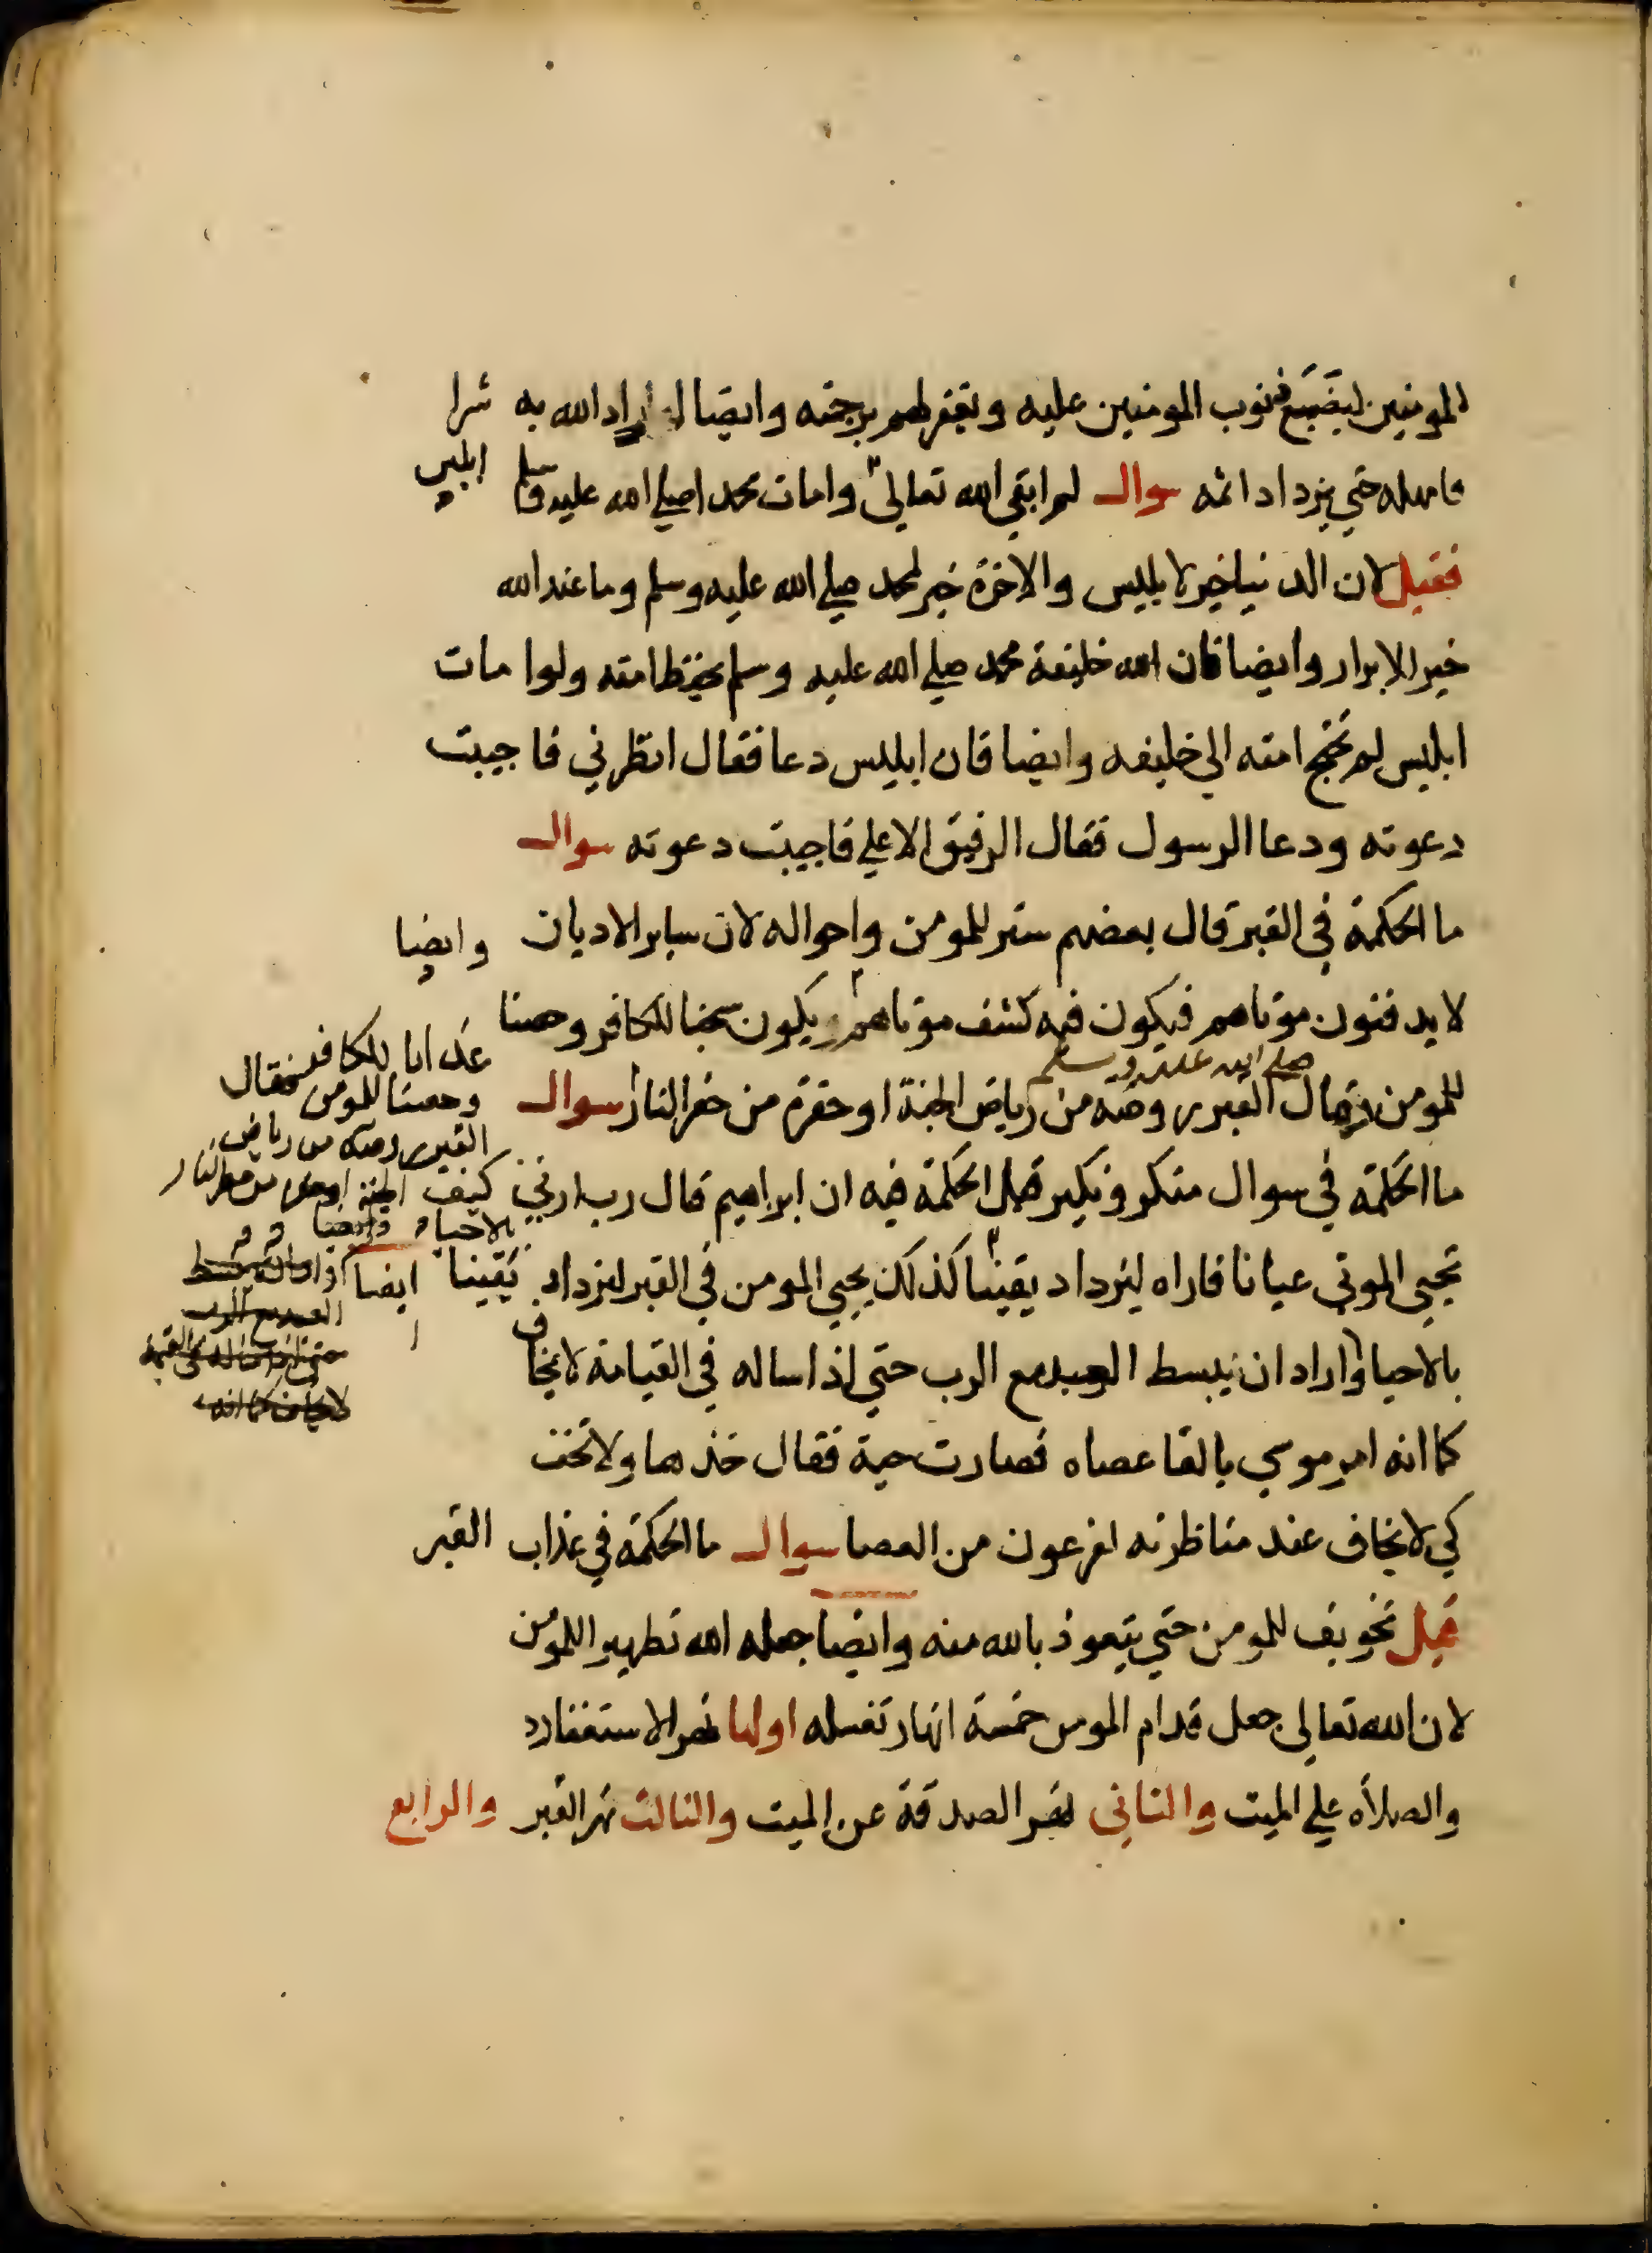 المومنين ليضع ذنوب المومنين عليه ويغفر لهم برحمته وايضا اراد الله به شرا
فامهله حتي يزداد اثمه سوال لم ابقي الله تعالي وامات محمد اصلي الله عليه وسلم ابليس
فقيل لان الدنيا خير لابليس والاخرة خير لمحمد صلي الله عليه وسلم وما عند الله
خير للابرار وايضا فان الله خليفة محمد صلي الله عليه وسلم يحفظ امته ولوا مات
ابليس لم تحتج امته الي خليفه وايضا فان ابليس دعا فقال انظرني فاجيبت
دعوته ودعا الرسول فقال الرفيق الاعلي فاجيبت دعوته سوال
ما الحكمة في القبر قال بعضهم ستر للمومن واحواله لان ساير الاديان وايضا
لا يدفنون موتاهم فيكون فيه كشف موتاهم ويكون سجنا للكافر وحصنا
صلي الله عليه وسلم
للمومن وقال القبر روضه من رياض الجنة او حفرة من حفر النار سوال
ما الحكمة في سوال منكر ونكير قيل الحكمة فيه ان ابراهيم قال رب ارني كيف
تحيي الموتي عيانا فاراه ليزداد يقينا كذلك يحيي المومن في القبر ليزداد يقينا
بالاحيا واراد ان يبسط العبد مع الرب حتي اذا ساله في القيامة لا يخاف
كما انه امر موسي بالقا عصاه فصارت حية فقال خذها ولا تخف
كي لا يخاف عند مناظرته لفرعون من العصا سوال ما الحكمة في عذاب القبر
قيل تخويف للمومن حتي يتعوذ بالله منه وايضا جعله الله تطهيرا للمومن
لان الله تعالي جعل قدام المومن خمسة انهار تغسله اولها نهر الاستغفار
والصلاه علي الميت والثاني نهر الصدقة عن الميت والثالث نهر القبر والرابع
عذابا للكافر فقال
وحصنا للمومن
القبر روضه من رياض
الجنة او حفره من حفر النار
بالاحيا وايضا
ايضا